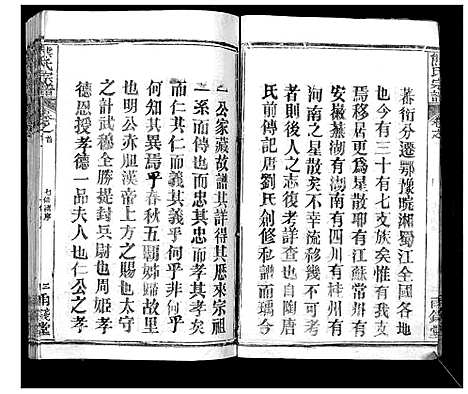 熊氏宗譜
卷之首
蕃衍分遷鄂豫皖湘蜀江全國各地
也今有三十有七支族矣惟有我一
焉移居更爲星散現有江蘇常州有
安徽蕪湖有湖南有四川有桂州有
河南之星散矣不幸流移幾不可考
者則後人之志復考詳查也自陶唐
氏前傳記唐劉氏創修私譜璃今
雨錢堂
二公家藏故譜其詳得其歷來宗祖
一系而忠其忠而孝其孝矣
而仁其仁而義其義乎何乎非何乎
何知其異焉乎春秋五覇姊婦故里
也明公赤胆漢帝上方之賜也太守
之計武穆全勝提封兵尉也周姬孝
德恩授孝德一品夫人也仁公之孝
熊氏宗譜
卷之首
二
雨錢堂